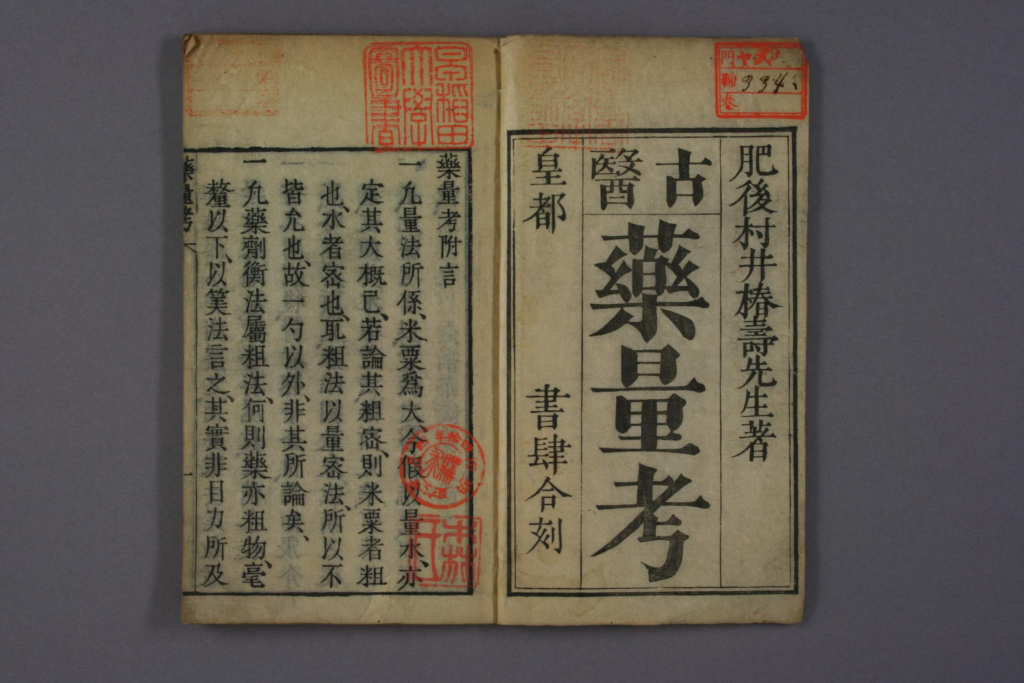 肥後村井椿壽先生著
古醫
藥量考
皇都 書肆合刻
藥量考附言
一凢量法所係米粟爲大今假以量水亦
定其大概已若論其粗密則米粟者粗
也水者密也耴粗法以量密法所以不
皆允也故一勺以外非其所論矣
一凢藥劑衡法屬粗法何則藥亦粗物毫
釐以下以筭法言之其實非目力所及
藥量考
一
早稲田大學圖書
門
號 334
卷